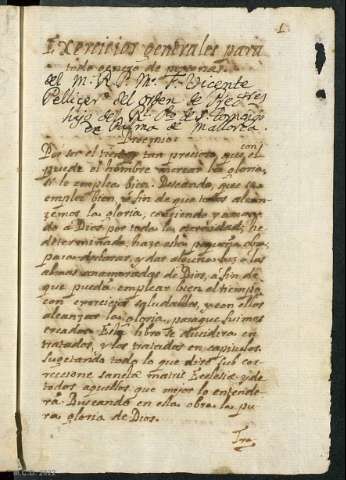 1
Exercicios generales para
todo genero de personas
del M. R. P. M. F. Vicente
Pelliçer del orden de Predres
hijo del Rl. de S. Domingo
de Palma de Mallorca.
Proemio
Por ser el tiempo tan precioso, que con
puede el hombre mercar la gloria,
si lo emplea bien. Deseando, que se
emplee bien, a fin de que todos alcan
zemos la gloria, cogiendo y amando
a Dios por toda la eternidad; he
determinado, hazer esta pequeña obra,
para declarar, y dar alguna luz a las
almas enamoradas de Dios, a fin de
que puedan emplear bien el tiempo,
con exercicios saludables, y con ellos
alcanzar la gloria, para que fuimos
creados. Este libro se dividira en
tratados, y los tratados en capitulos.
Sugetando todo lo que dire sub cor
rectione sanctæ matris Ecclesiæ, y de
todos aquellos, que mejor lo entende
ran. Buscando en esta obra la pu
ra gloria de Dios.
Tra